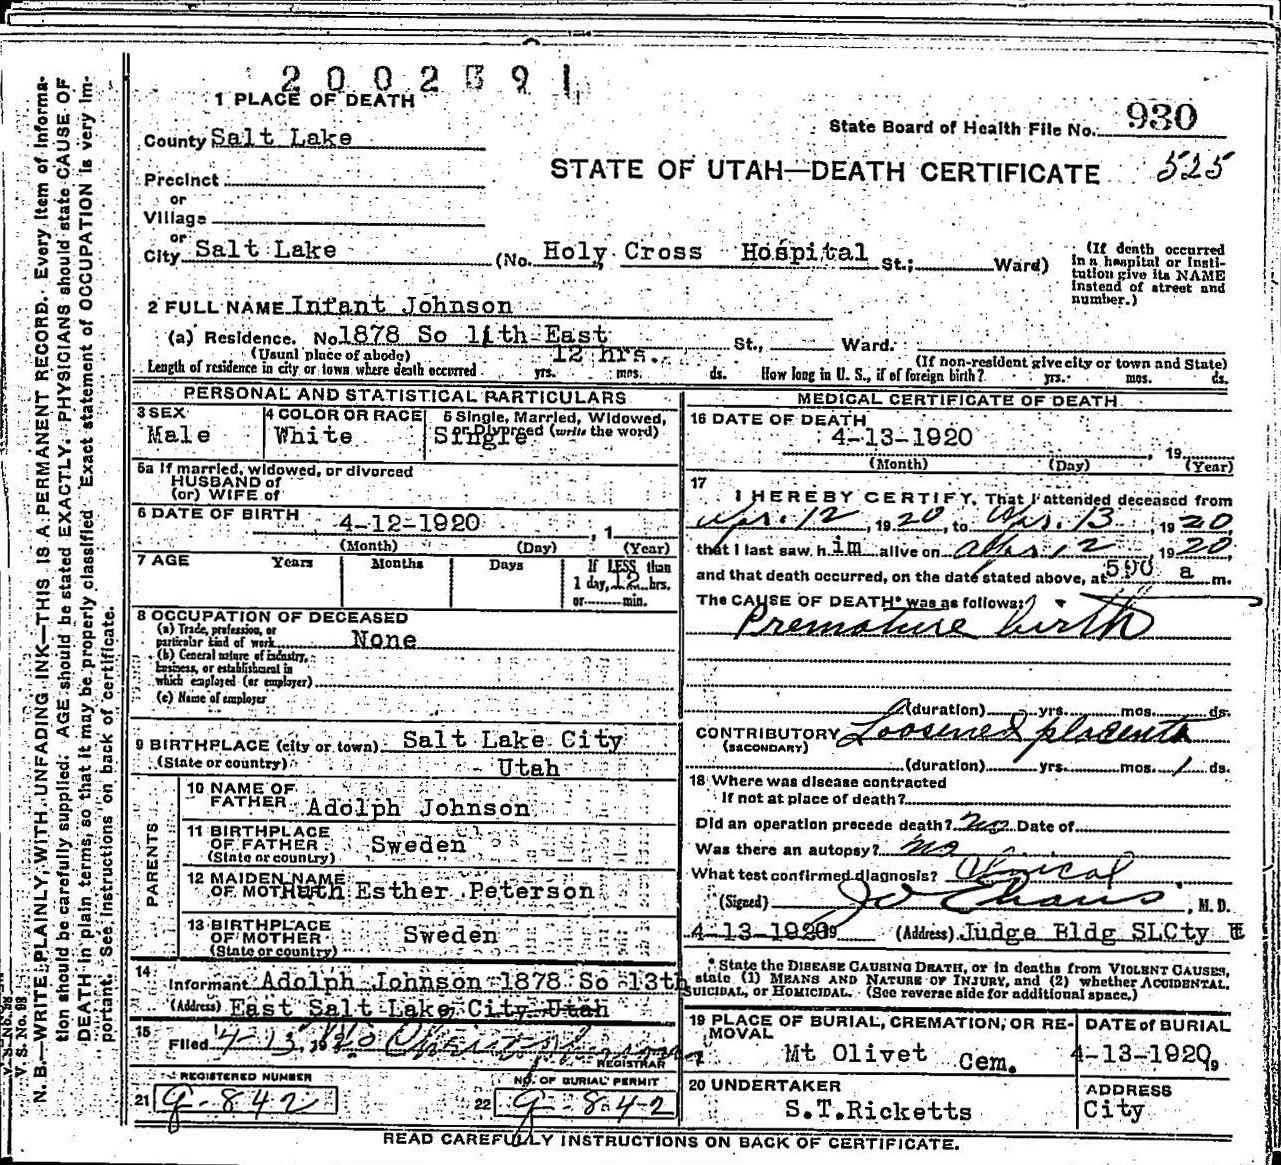 2002391
1 PLACE OF DEATH
State Board of Health File No. 930
County Salt Lake
STATE OF UTAH—DEATH CERTIFICATE 525
Precinct
or
Village
or
City Salt Lake (No. Holy Cross Hospital St.; Ward)
(If death occurred in a hospital or Insti-
tution give its NAME
instead of street and
number.)
2 FULL NAME Infant Johnson
(a) Residence. No. 1878 So 11th East St., Ward.
(Usual place of abode) (If non-resident give city or town and State)
Length of residence in city or town where death occurred yrs. mos. 12 hrs. ds. How long in U. S., if of foreign birth? yrs. mos. ds.
PERSONAL AND STATISTICAL PARTICULARS
3 SEX Male
4 COLOR OR RACE White
5 Single, Married, Widowed,
or Divorced (write the word) Single
5a If married, widowed, or divorced
HUSBAND of
(or) WIFE of
6 DATE OF BIRTH 4-12-1920 , 1
(Month) (Day) (Year)
7 AGE Years Months Days If LESS than
1 day, 12 hrs.
or min.
8 OCCUPATION OF DECEASED
(a) Trade, profession, or
particular kind of work None
(b) General nature of industry,
business, or establishment in
which employed (or employer)
(c) Name of employer
9 BIRTHPLACE (city or town) Salt Lake City
(State or country) Utah
PARENTS
10 NAME OF
FATHER Adolph Johnson
11 BIRTHPLACE
OF FATHER Sweden
(State or country)
12 MAIDEN NAME
OF MOTHER Ruth Esther Peterson
13 BIRTHPLACE
OF MOTHER Sweden
(State or country)
14
Informant Adolph Johnson 1878 So 13th
(Address) East Salt Lake City Utah
15
Filed 4-13, 1920
REGISTRAR
REGISTERED NUMBER
21 G-842
NO. OF BURIAL PERMIT
22 G-842
MEDICAL CERTIFICATE OF DEATH
16 DATE OF DEATH
4-13-1920 , 19
(Month) (Day) (Year)
17
I HEREBY CERTIFY, That I attended deceased from
Apr. 12, 1920, to Apr. 13, 1920
that I last saw him alive on Apr 12, 1920,
and that death occurred, on the date stated above, at 500 a m.
The CAUSE OF DEATH* was as follows:
Premature birth
(duration) yrs. mos. ds.
CONTRIBUTORY Loosened placenta
(SECONDARY)
(duration) yrs. mos. 1 ds.
18 Where was disease contracted
If not at place of death?
Did an operation precede death? No Date of
Was there an autopsy? No
What test confirmed diagnosis? Clinical
(Signed) , M.D.
4-13-1920 19 (Address) Judge Bldg SLCty Ut
* State the DISEASE CAUSING DEATH, or in deaths from VIOLENT CAUSES,
state (1) MEANS AND NATURE OF INJURY, and (2) whether ACCIDENTAL,
SUICIDAL, or HOMICIDAL. (See reverse side for additional space.)
19 PLACE OF BURIAL, CREMATION, OR RE-
MOVAL
Mt Olivet Cem.
DATE of BURIAL
4-13-1920, 19
20 UNDERTAKER
S.T.Ricketts
ADDRESS
City
READ CAREFULLY INSTRUCTIONS ON BACK OF CERTIFICATE.
V. S. No. 98
N. B.—WRITE PLAINLY, WITH UNFADING INK—THIS IS A PERMANENT RECORD. Every item of informa-
tion should be carefully supplied. AGE should be stated EXACTLY. PHYSICIANS should state CAUSE OF
DEATH in plain terms, so that it may be properly classified. Exact statement of OCCUPATION is very im-
portant. See instructions on back of certificate.